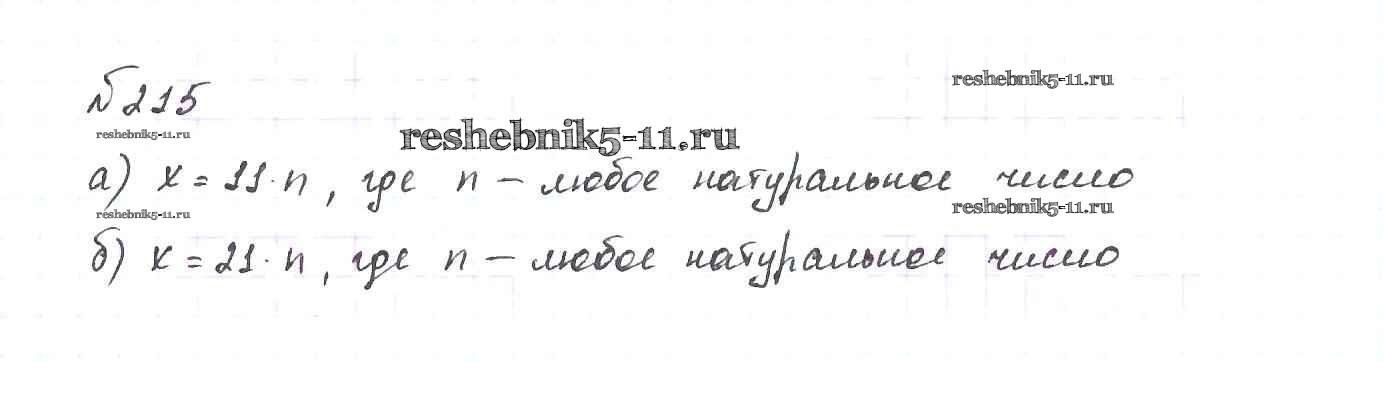 №215
reshebnik5-11.ru
reshebnik5-11.ru
reshebnik5-11.ru
а) x = 11·n, где n – любое натуральное число
reshebnik5-11.ru
reshebnik5-11.ru
б) x = 21·n, где n – любое натуральное число